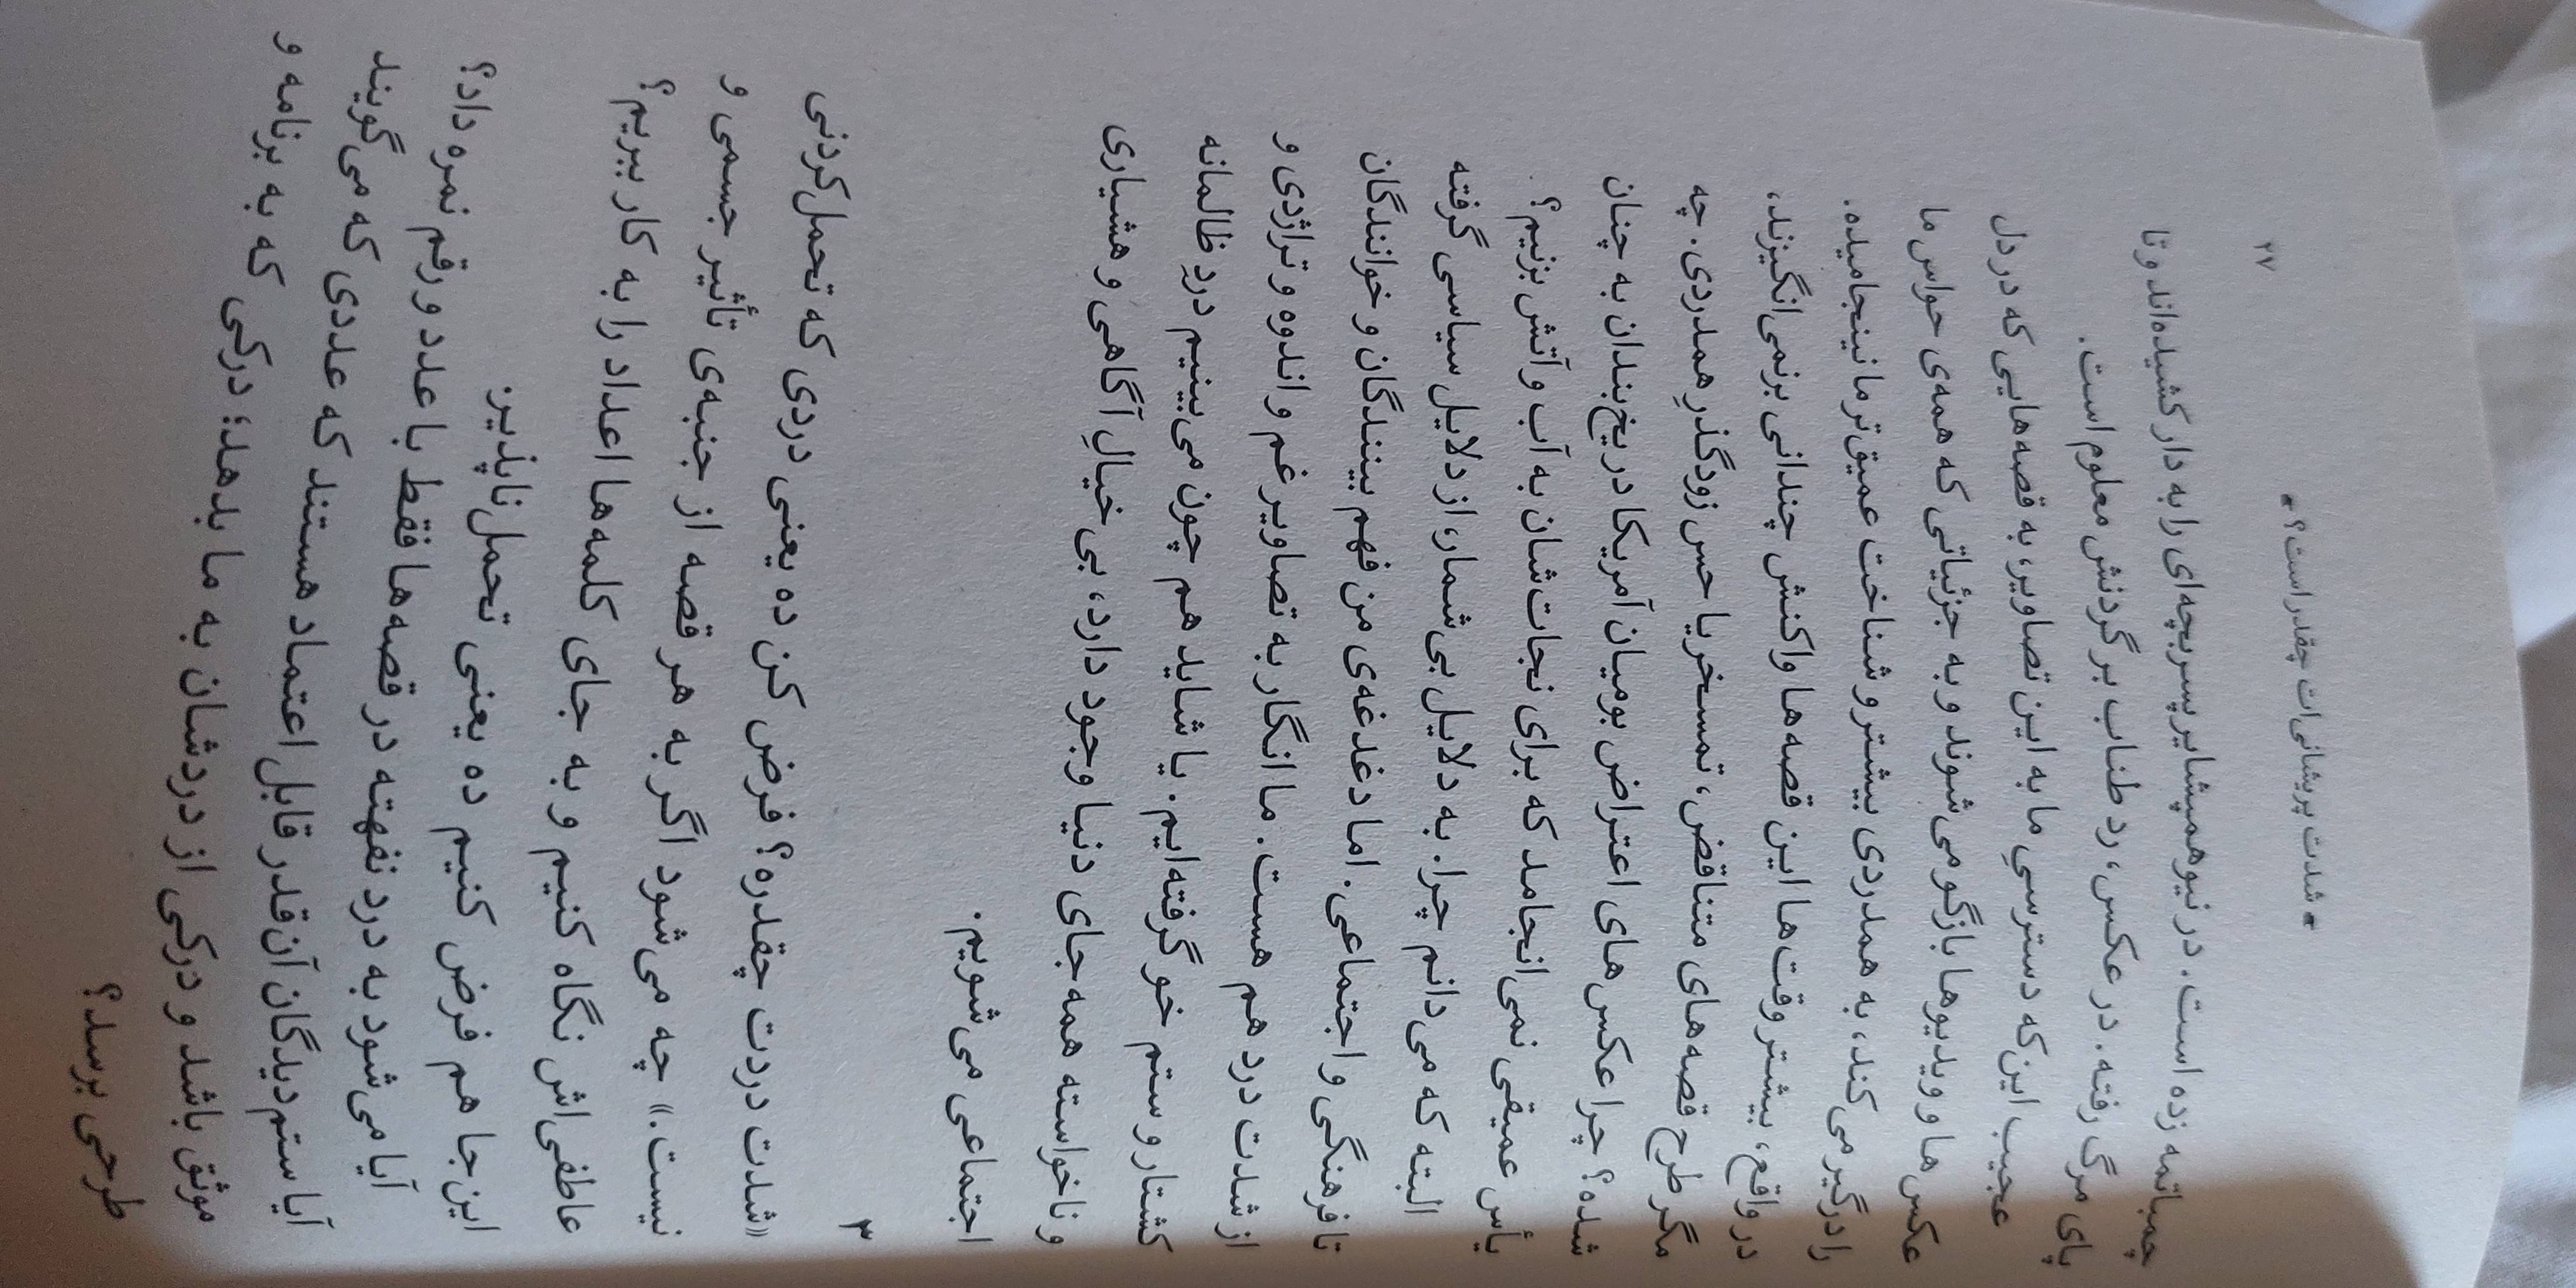 «شدت پریشانی‌ات چقدر است؟» ۲۷
چمباتمه زده است. در نیوهمپشایر پسربچه‌ای را به دار کشیده‌اند و تا
پای مرگ رفته. در عکس، رد طناب بر گردنش معلوم است.
عجیب این‌که دسترسیِ ما به این تصاویر، به قصه‌هایی که در دل
عکس‌ها و ویدیوها بازگو می‌شوند و به جزئیاتی که همه‌ی حواس ما
را درگیر می‌کند، به همدردی بیشتر و شناخت عمیق‌تر ما نینجامیده.
در واقع، بیشتر وقت‌ها این قصه‌ها واکنش چندانی برنمی‌انگیزند،
مگر طرح قصه‌های متناقض، تمسخر یا حس زودگذرِ همدردی. چه
شده؟ چرا عکس‌های اعتراض بومیان آمریکا در یخ‌بندان به چنان
یأس عمیقی نمی‌انجامد که برای نجات‌شان به آب و آتش بزنیم؟
البته که می‌دانم چرا. به دلایل بی‌شمار، از دلایل سیاسی گرفته
تا فرهنگی و اجتماعی. اما دغدغه‌ی من فهم بینندگان و خوانندگان
از شدت درد هم هست. ما انگار به تصاویر غم و اندوه و تراژدی و
کشتار و ستم خو گرفته‌ایم. یا شاید هم چون می‌بینیم دردِ ظالمانه
و ناخواسته همه‌جای دنیا وجود دارد، بی‌خیالِ آگاهی و هشیاری
اجتماعی می‌شویم.
۳
«شدت دردت چقدره؟ فرض کن ده یعنی دردی که تحمل‌کردنی
نیست.» چه می‌شود اگر به هر قصه از جنبه‌ی تأثیر جسمی و
عاطفی‌اش نگاه کنیم و به جای کلمه‌ها اعداد را به کار ببریم؟
این‌جا هم فرض کنیم ده یعنی تحمل‌ناپذیر.
آیا می‌شود به درد نهفته در قصه‌ها فقط با عدد و رقم نمره داد؟
آیا ستم‌دیدگان آن‌قدر قابل اعتماد هستند که عددی که می‌گویند
موثق باشد و درکی از دردشان به ما بدهد؛ درکی که به برنامه و
طرحی برسد؟